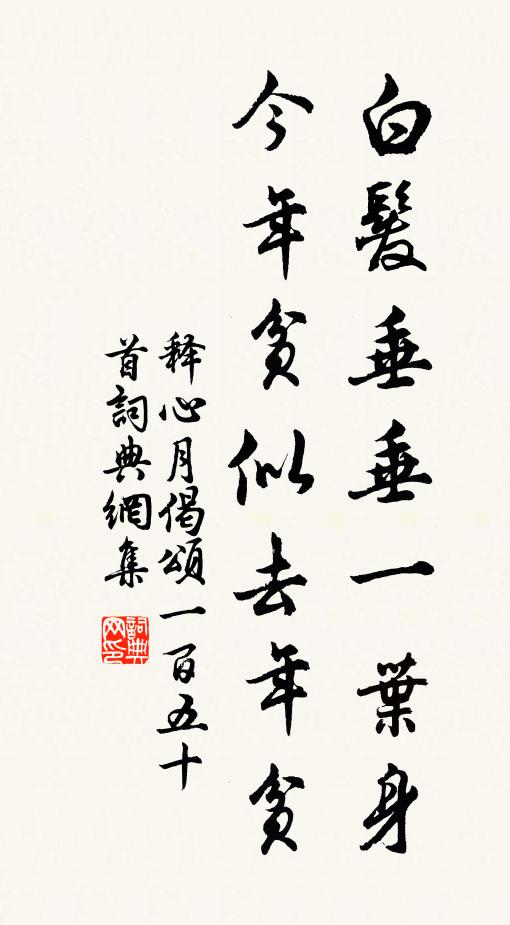 白髮垂垂一葉身
今年貧似去年貧
释心月偈頌一百五十
首詞典網集
詞典网印